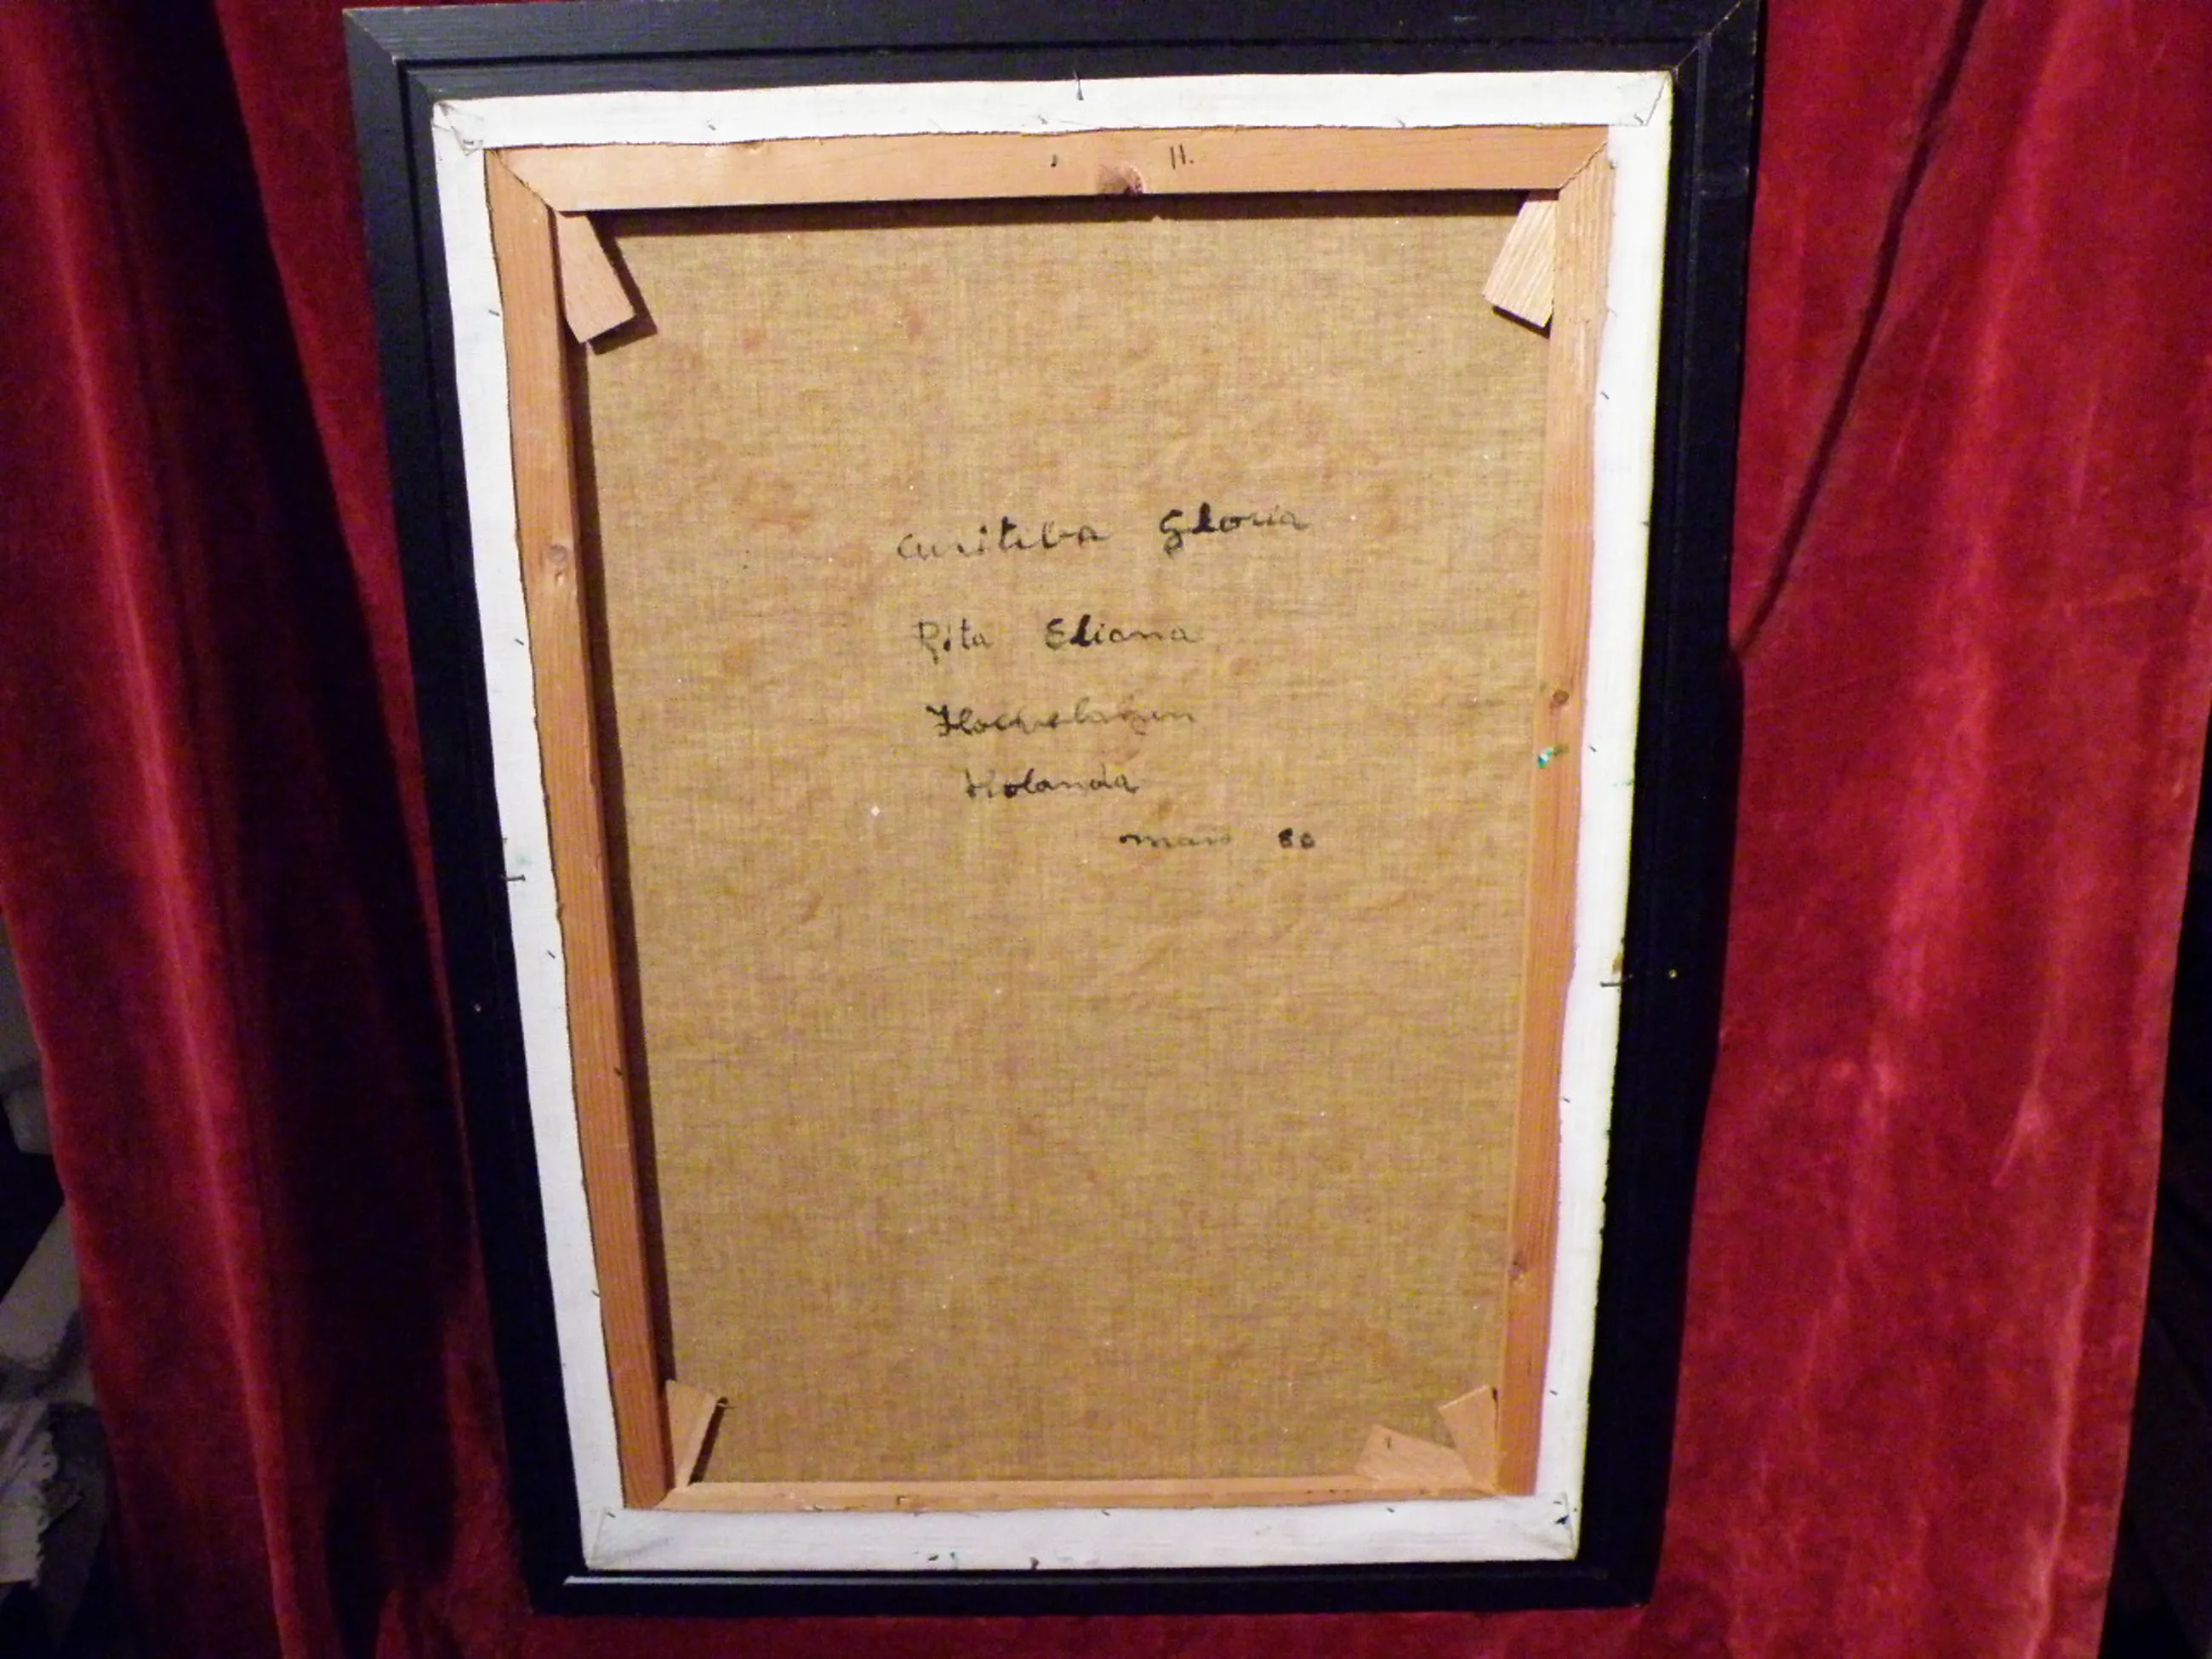 11.
Curitiba Gloria
Rita Eliana
Holanda
maio 80